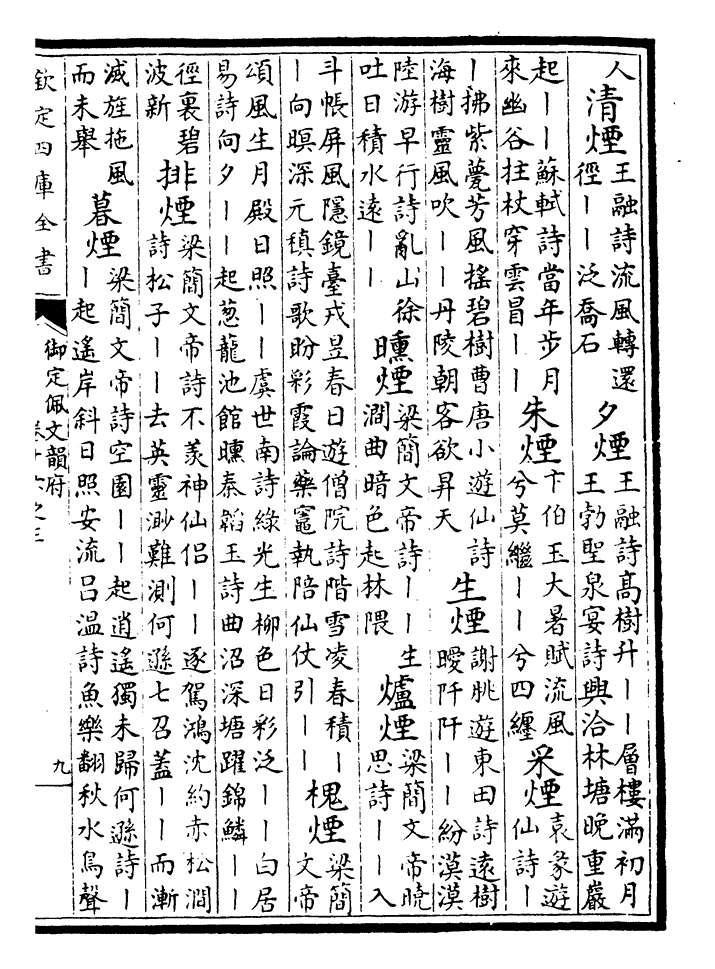 人 清煙 王融詩流風轉還徑丨丨泛喬石 夕煙 王融詩高樹升丨丨層樓滿初月王勃聖泉宴詩興洽林塘晚重巖
起丨丨蘇軾詩當年步月來幽谷拄杖穿雲冒丨丨 朱煙 卞伯玉大暑賦流風兮莫繼丨丨兮四纏 采煙 袁彖遊仙詩丨
丨拂紫甍芳風搖碧樹曹唐小遊仙詩海樹靈風吹丨丨丹陵朝客欲昇天 生煙 謝朓遊東田詩遠樹曖阡阡丨丨紛漠漠
陸游早行詩亂山徐吐日積水遠丨丨 曛煙 梁簡文帝詩丨丨生澗曲暗色起林隈 爐煙 梁簡文帝曉思詩丨丨入
斗帳屏風隱鏡臺戎昱春日遊僧院詩階雪凌春積丨丨向暝深元稹詩歌盼彩霞論藥竈執陪仙仗引丨丨 槐煙 梁簡文帝
頌風生月殿日照丨丨虞世南詩綠光生柳色日彩泛丨丨白居易詩向夕丨丨起葱龍池館曛秦韜玉詩曲沼深塘躍錦鱗丨丨
徑裏碧波新 排煙 梁簡文帝詩不羨神仙侶丨丨逐駕鴻沈約赤松澗詩松子丨丨去英靈渺難測何遜七召蓋丨丨而漸
滅旌拖風而未舉 暮煙 梁簡文帝詩空園丨丨起逍遙獨未歸何遜詩丨丨起遙岸斜日照安流吕溫詩魚樂翻秋水鳥聲
欽定四庫全書
御定佩文韻府
卷十六之三
九